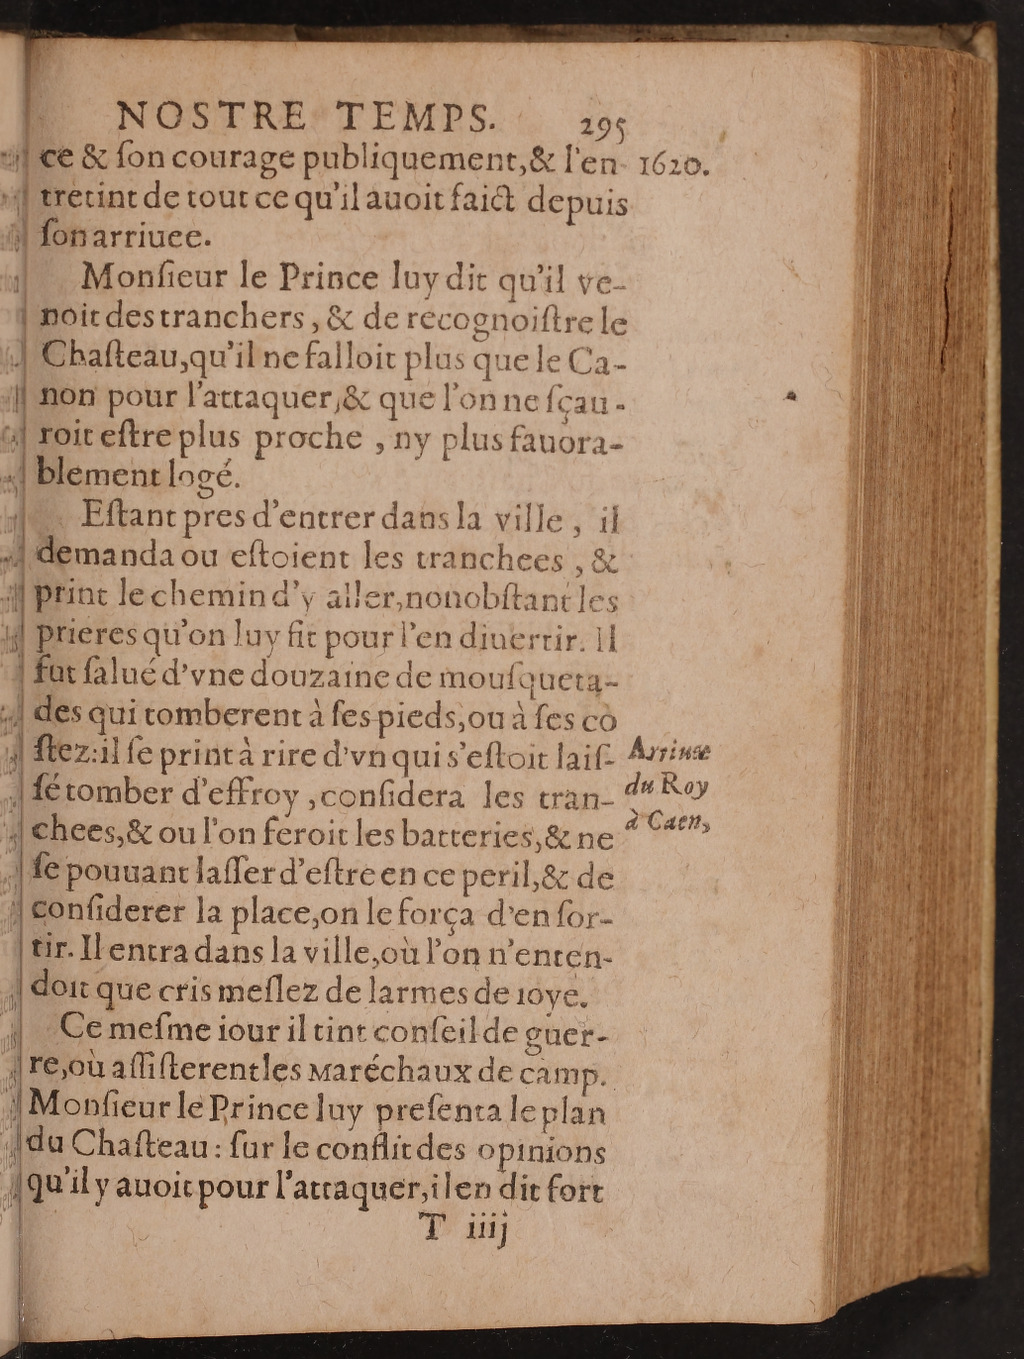 NOSTRE TEMPS. 295
ce & ſon courage publiquement, & l'en- 1620.
tretint de tout ce qu'il auoit faict depuis
ſon arriuee.
Monſieur le Prince luy dit qu'il ve-
noit des tranchers, & de recognoiſtre le
Chaſteau, qu'il ne falloit plus que le Ca-
non pour l'attaquer, & que l'on ne ſçau-
roit eſtre plus proche, ny plus fauora-
blement logé.
Eſtant pres d'entrer dans la ville, il
demanda ou eſtoient les tranchees, &
print le chemin d'y aller, nonobſtant les
prieres qu'on luy fit pour l'en diuertir. Il
fut ſalué d'vne douzaine de mouſqueta-
des qui tomberent à ſes pieds, ou à ſes co
ſtez: il ſe print à rire d'vn qui s'eſtoit laiſ-
ſé tomber d'effroy, conſidera les tran-
chees, & ou l'on feroit les batteries, & ne
ſe pouuant laſſer d'eſtre en ce peril, & de
conſiderer la place, on le força d'en ſor-
tir. Il entra dans la ville, où l'on n'enten-
doit que cris meſlez de larmes de ioye.
Ce meſme iour il tint conſeil de guer-
re, où aſſiſterent les Maréchaux de camp.
Monſieur le Prince luy preſenta le plan
du Chaſteau: ſur le conflit des opinions
qu'il y auoit pour l'attaquer, il en dit fort
T iiij
Arriuee
du Roy
à Caen,